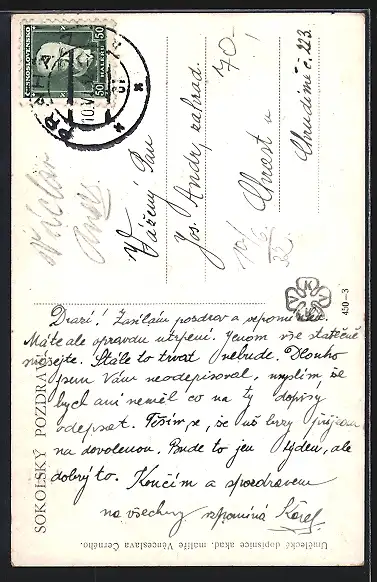 ČESKOSLOVENSKO
50 HALÉŘŮ 50
PRAHA
10.VI
Václav
Vážený Pan
Jos. Andry zahrad.
70
Chrast u
Chrudimě č. 223.
10/6
32
V K V
450-3
Drazí! Zasílám pozdrav a
Máte ale opravdu utrpení. Jenom vše statečně
snášejte. Stále to trvat nebude. Dlouho
jsem Vám neodepisoval, myslím, že
bych ani neměl co na ty dopisy
odepsat. Těším se, že už brzy přijedu
na dovolenou. Bude to jen týden, ale
dobrý to. Končím a s pozdravem
na všechny vzpomíná Karel
SOKOLSKÝ POZDRAV
Umělecké dopisnice akad. malíře Věnceslava Černého.